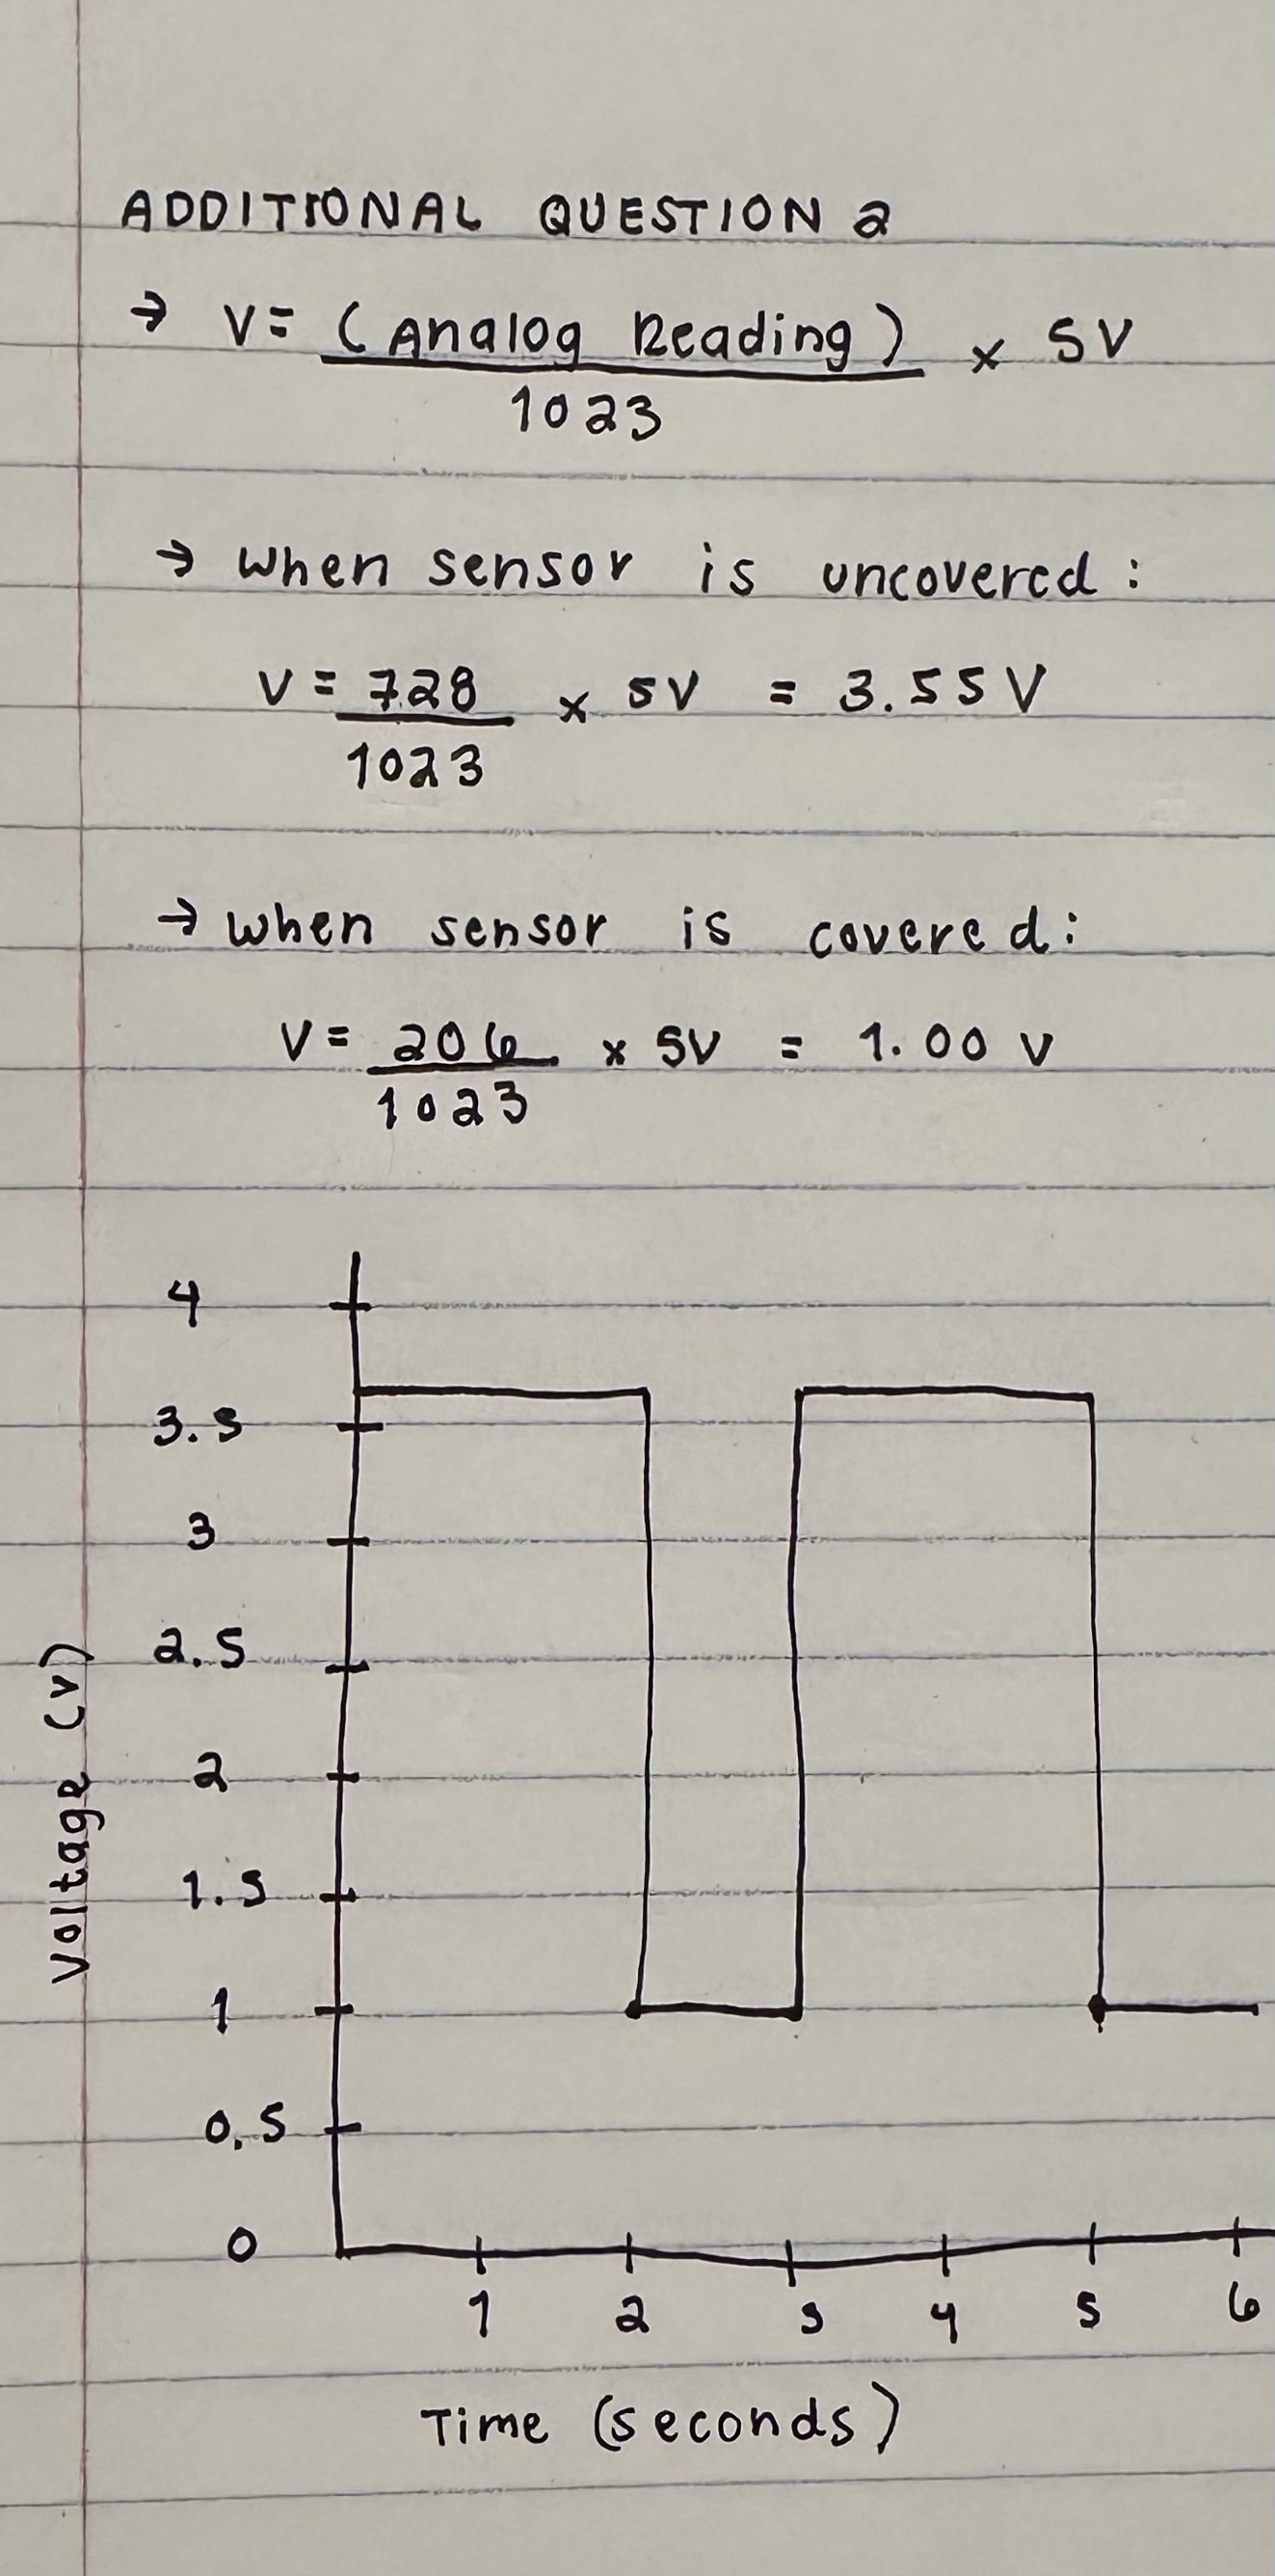 ADDITIONAL QUESTION 2
→ V = (Analog Reading) × 5V
1023
→ when sensor is uncovered:
V = 728 × 5V = 3.55V
1023
→ when sensor is covered:
V = 206 × 5V = 1.00 V
1023
4
3.5
3
2.5
2
1.5
1
0.5
0
Voltage (V)
1 2 3 4 5 6
Time (seconds)